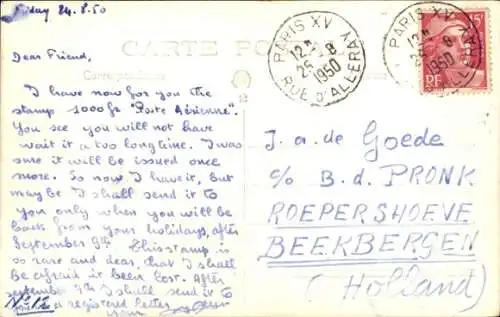 Friday 24.8.50
CARTE PO
Correspondance
Dear Friend,
I have now for you the
stamp 1000 fr "Poste Aérienne".
You see you will not have
wait it a too longtime. I was
sure it will be issued once
more. So now I have it, but
maybe I shall send it to
you only when you will be
back from your holidays, after
September 9th. This stamp is
so rare and dear, that I shall
be afraid it been lost. After
september 9th I shall send it to
a registred letter
Nº 12
PARIS XV
12H
25-8
1950
RUE D'ALLERAY
PARIS XV
12H
25-8
1950
RUE D'ALLERAY
15F
RF
J. a. de Goede
c/o B. d. PRONK
ROEPERSHOEVE
BEEKBERGEN
(Holland)